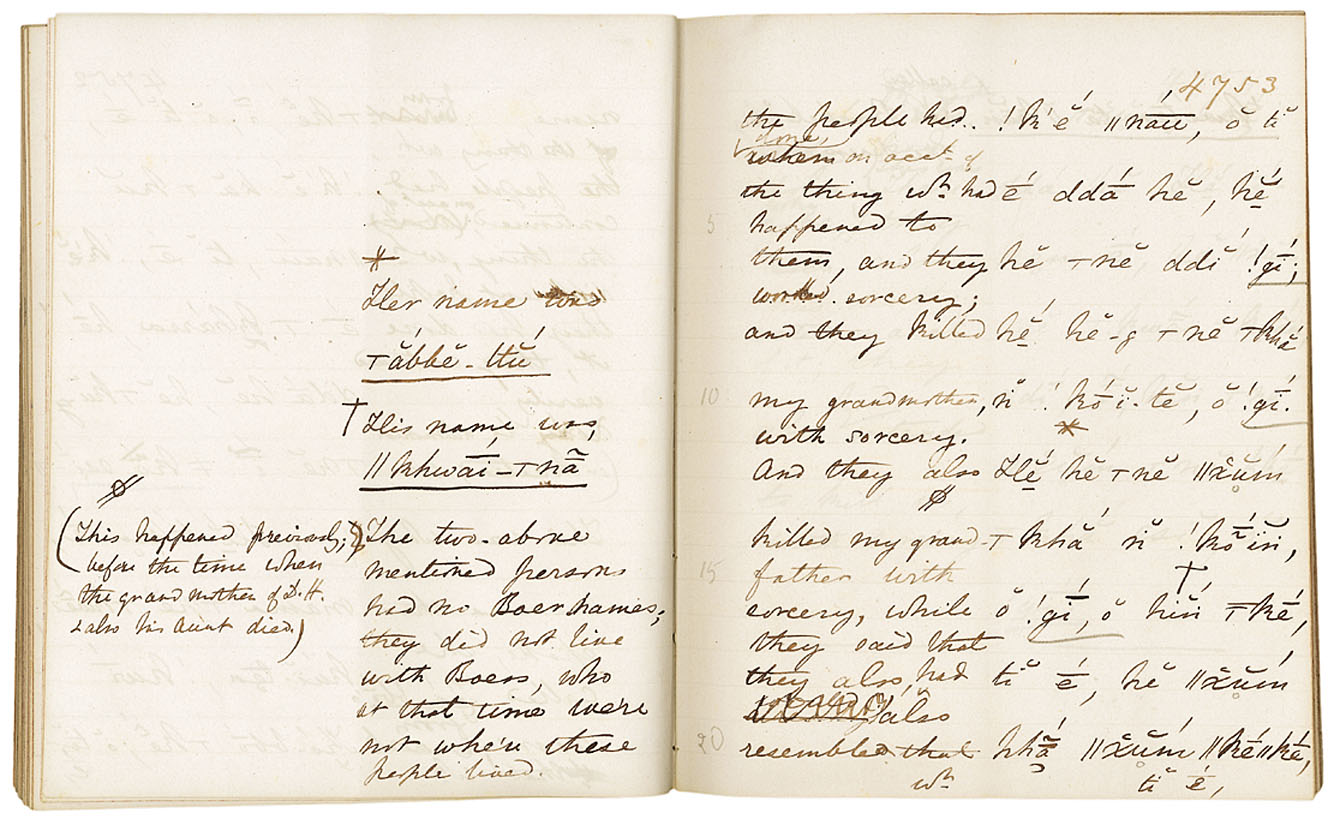 *
Her name was
ꞱắbbĔ-ttú̆
† His name was,
ǁkhwā́ī-Ʇnã
(This happened previously;
before the time when
the grandmother of D.H.
& also his aunt died.)
The two above
mentioned persons
had no Boer names;
they did not live
with Boers, who
at that time were
not where these
people lived.
4753
the people had.. !k'é̆ ǁnáū, ŏ tĭ
done,
on acct. of
the thing wh. had é ddá hĕ, hé̆
5 happened to
them, and they hĕ Ʇnĕ ddĭ !gī́;
worked sorcery;
and they killed hé̆ hĕ-g Ʇnĕ Ʇkhā̆
10 my grandmother, ň !kóĭ-tĕ, ŏ !gī́.
with sorcery. *
And they also hĕ Ʇnĕ ǁx̆ŭḿ
killed my grand- Ʇkhắ ň !kõ̆ĭń,
15 father with †
sorcery, while ŏ !gī́, ŏ hĭń Ʇké̄,
they said that
they also, had tĭ é̄, hĕ ǁx̆ŭḿ
also
20 resembled that khã̄ ǁx̆ŭḿ ǁké̄ǁké̄,
wh. tĭ é̄,